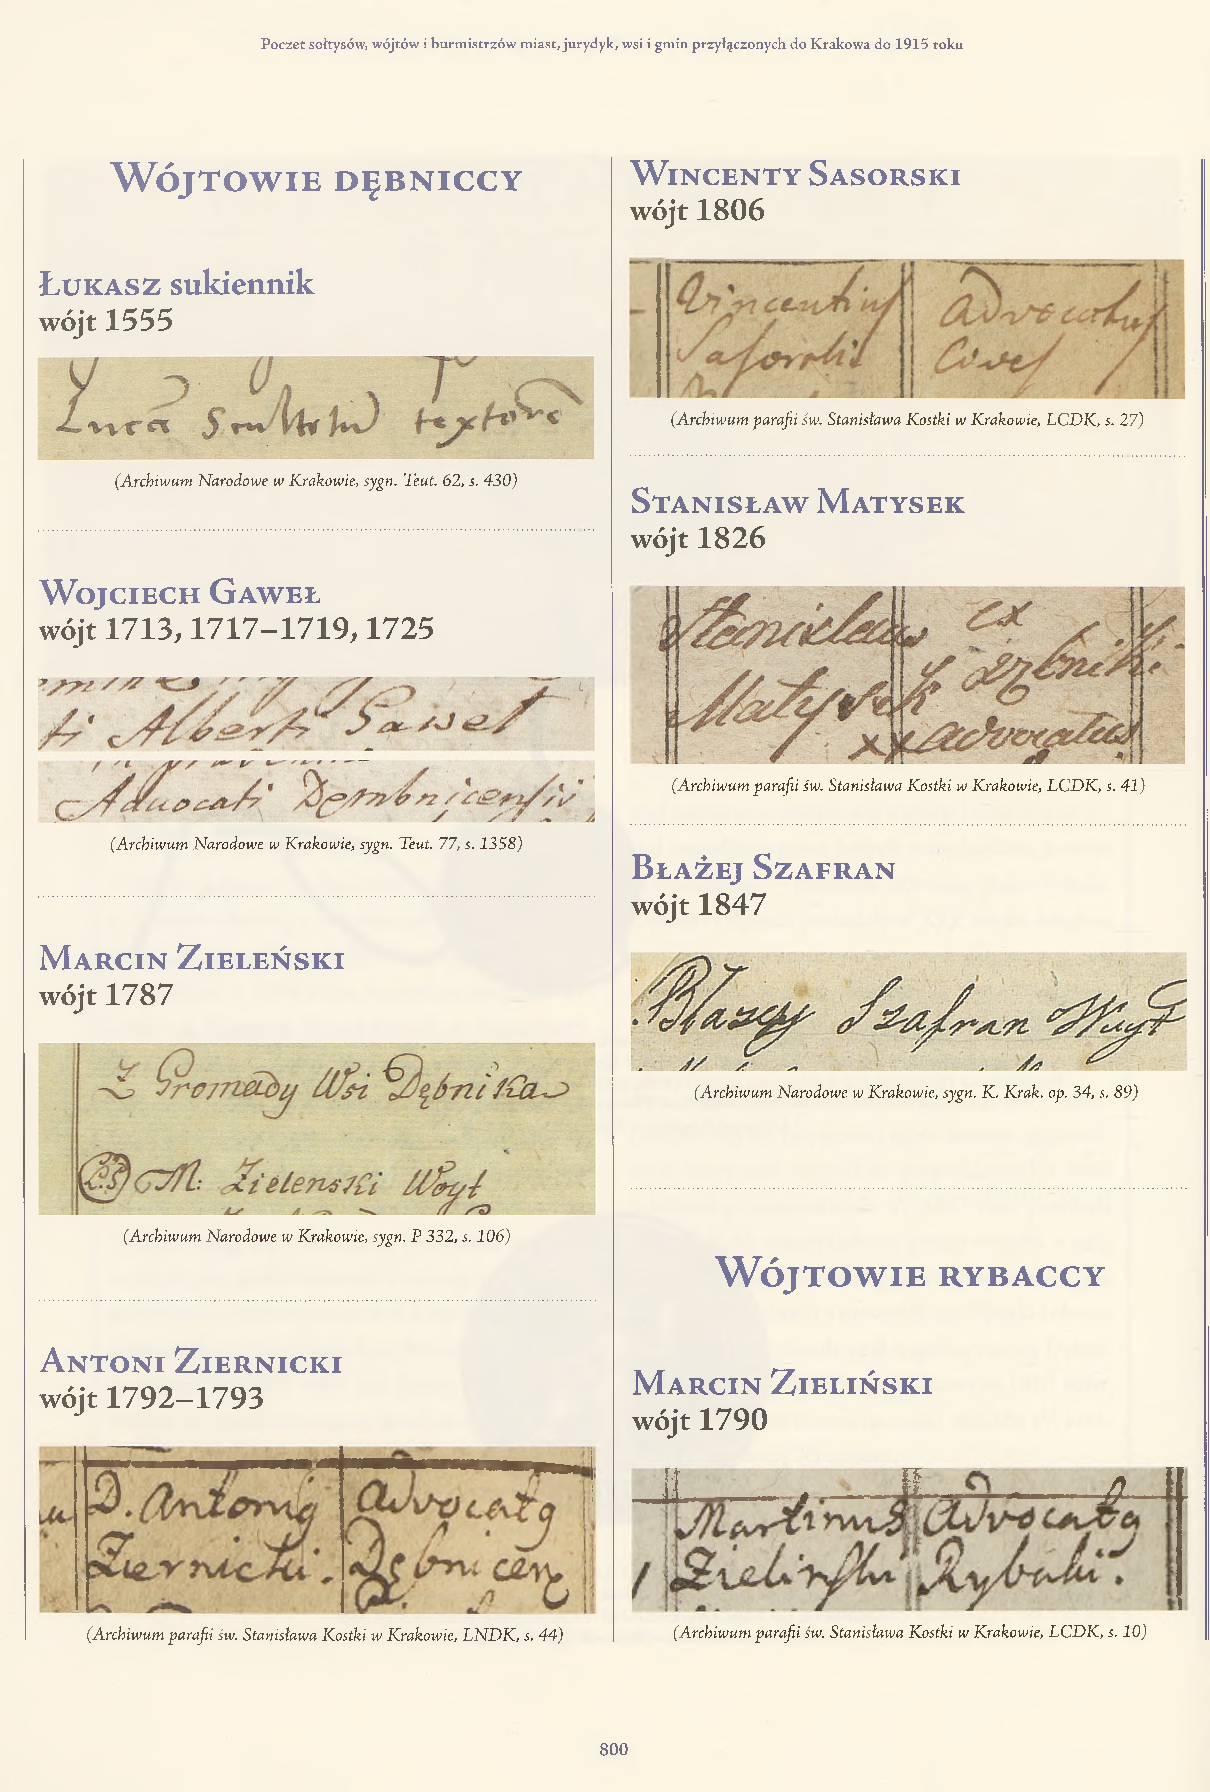 Poczet sołtysów, wójtów i burmistrzów miast, jurydyk, wsi i gmin przyłączonych do Krakowa do 1915 roku
Wójtowie dębniccy
Łukasz sukiennik
wójt 1555
Luca textore
(Archiwum Narodowe w Krakowie, sygn. Teut. 62, s. 430)
Wojciech Gaweł
wójt 1713, 1717–1719, 1725
ti Alberti Gaweł
Advocati Dembnicensis
(Archiwum Narodowe w Krakowie, sygn. Teut. 77, s. 1358)
Marcin Zieleński
wójt 1787
Z Gromady Wsi Dębnika
L.S M: Zielenski Woyt
(Archiwum Narodowe w Krakowie, sygn. P 332, s. 106)
Antoni Ziernicki
wójt 1792–1793
D. Antonig Advocatg
Ziernicki. Dębnicen
(Archiwum parafii św. Stanisława Kostki w Krakowie, LNDK, s. 44)
Wincenty Sasorski
wójt 1806
Vincentius Advocatus
Sasorski Cives
(Archiwum parafii św. Stanisława Kostki w Krakowie, LCDK, s. 27)
Stanisław Matysek
wójt 1826
Stanislaus ex
Matysek Dębniki
xx advocatus
(Archiwum parafii św. Stanisława Kostki w Krakowie, LCDK, s. 41)
Błażej Szafran
wójt 1847
Błazey Szafran Wuyt
(Archiwum Narodowe w Krakowie, sygn. K. Krak. op. 34, s. 89)
Wójtowie rybaccy
Marcin Zieliński
wójt 1790
Martinus Advocatg
Zielinski Rybaki.
(Archiwum parafii św. Stanisława Kostki w Krakowie, LCDK, s. 10)
800